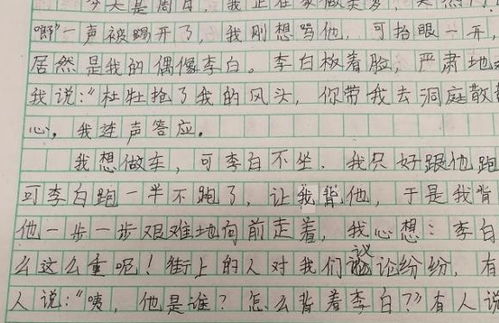 今天是周日，我正在家做美梦，突然门
嘟"一声被踢开了，我刚想骂他，可抬眼一开，
居然是我的偶像李白。李白板着脸，严肃地对
我说："杜牡抢了我的风头，你带我去洞庭散散
心，我连声答应。
我想做车，可李白不坐，我只好跟他跑
可李白跑一半不跑了，让我背他，于是我背
他一步一步艰难地向前走着，我心想：李白
么这么重呢！街上的人对我们议论纷纷，有
人说："咦，他是谁？怎么背着李白？"有人说